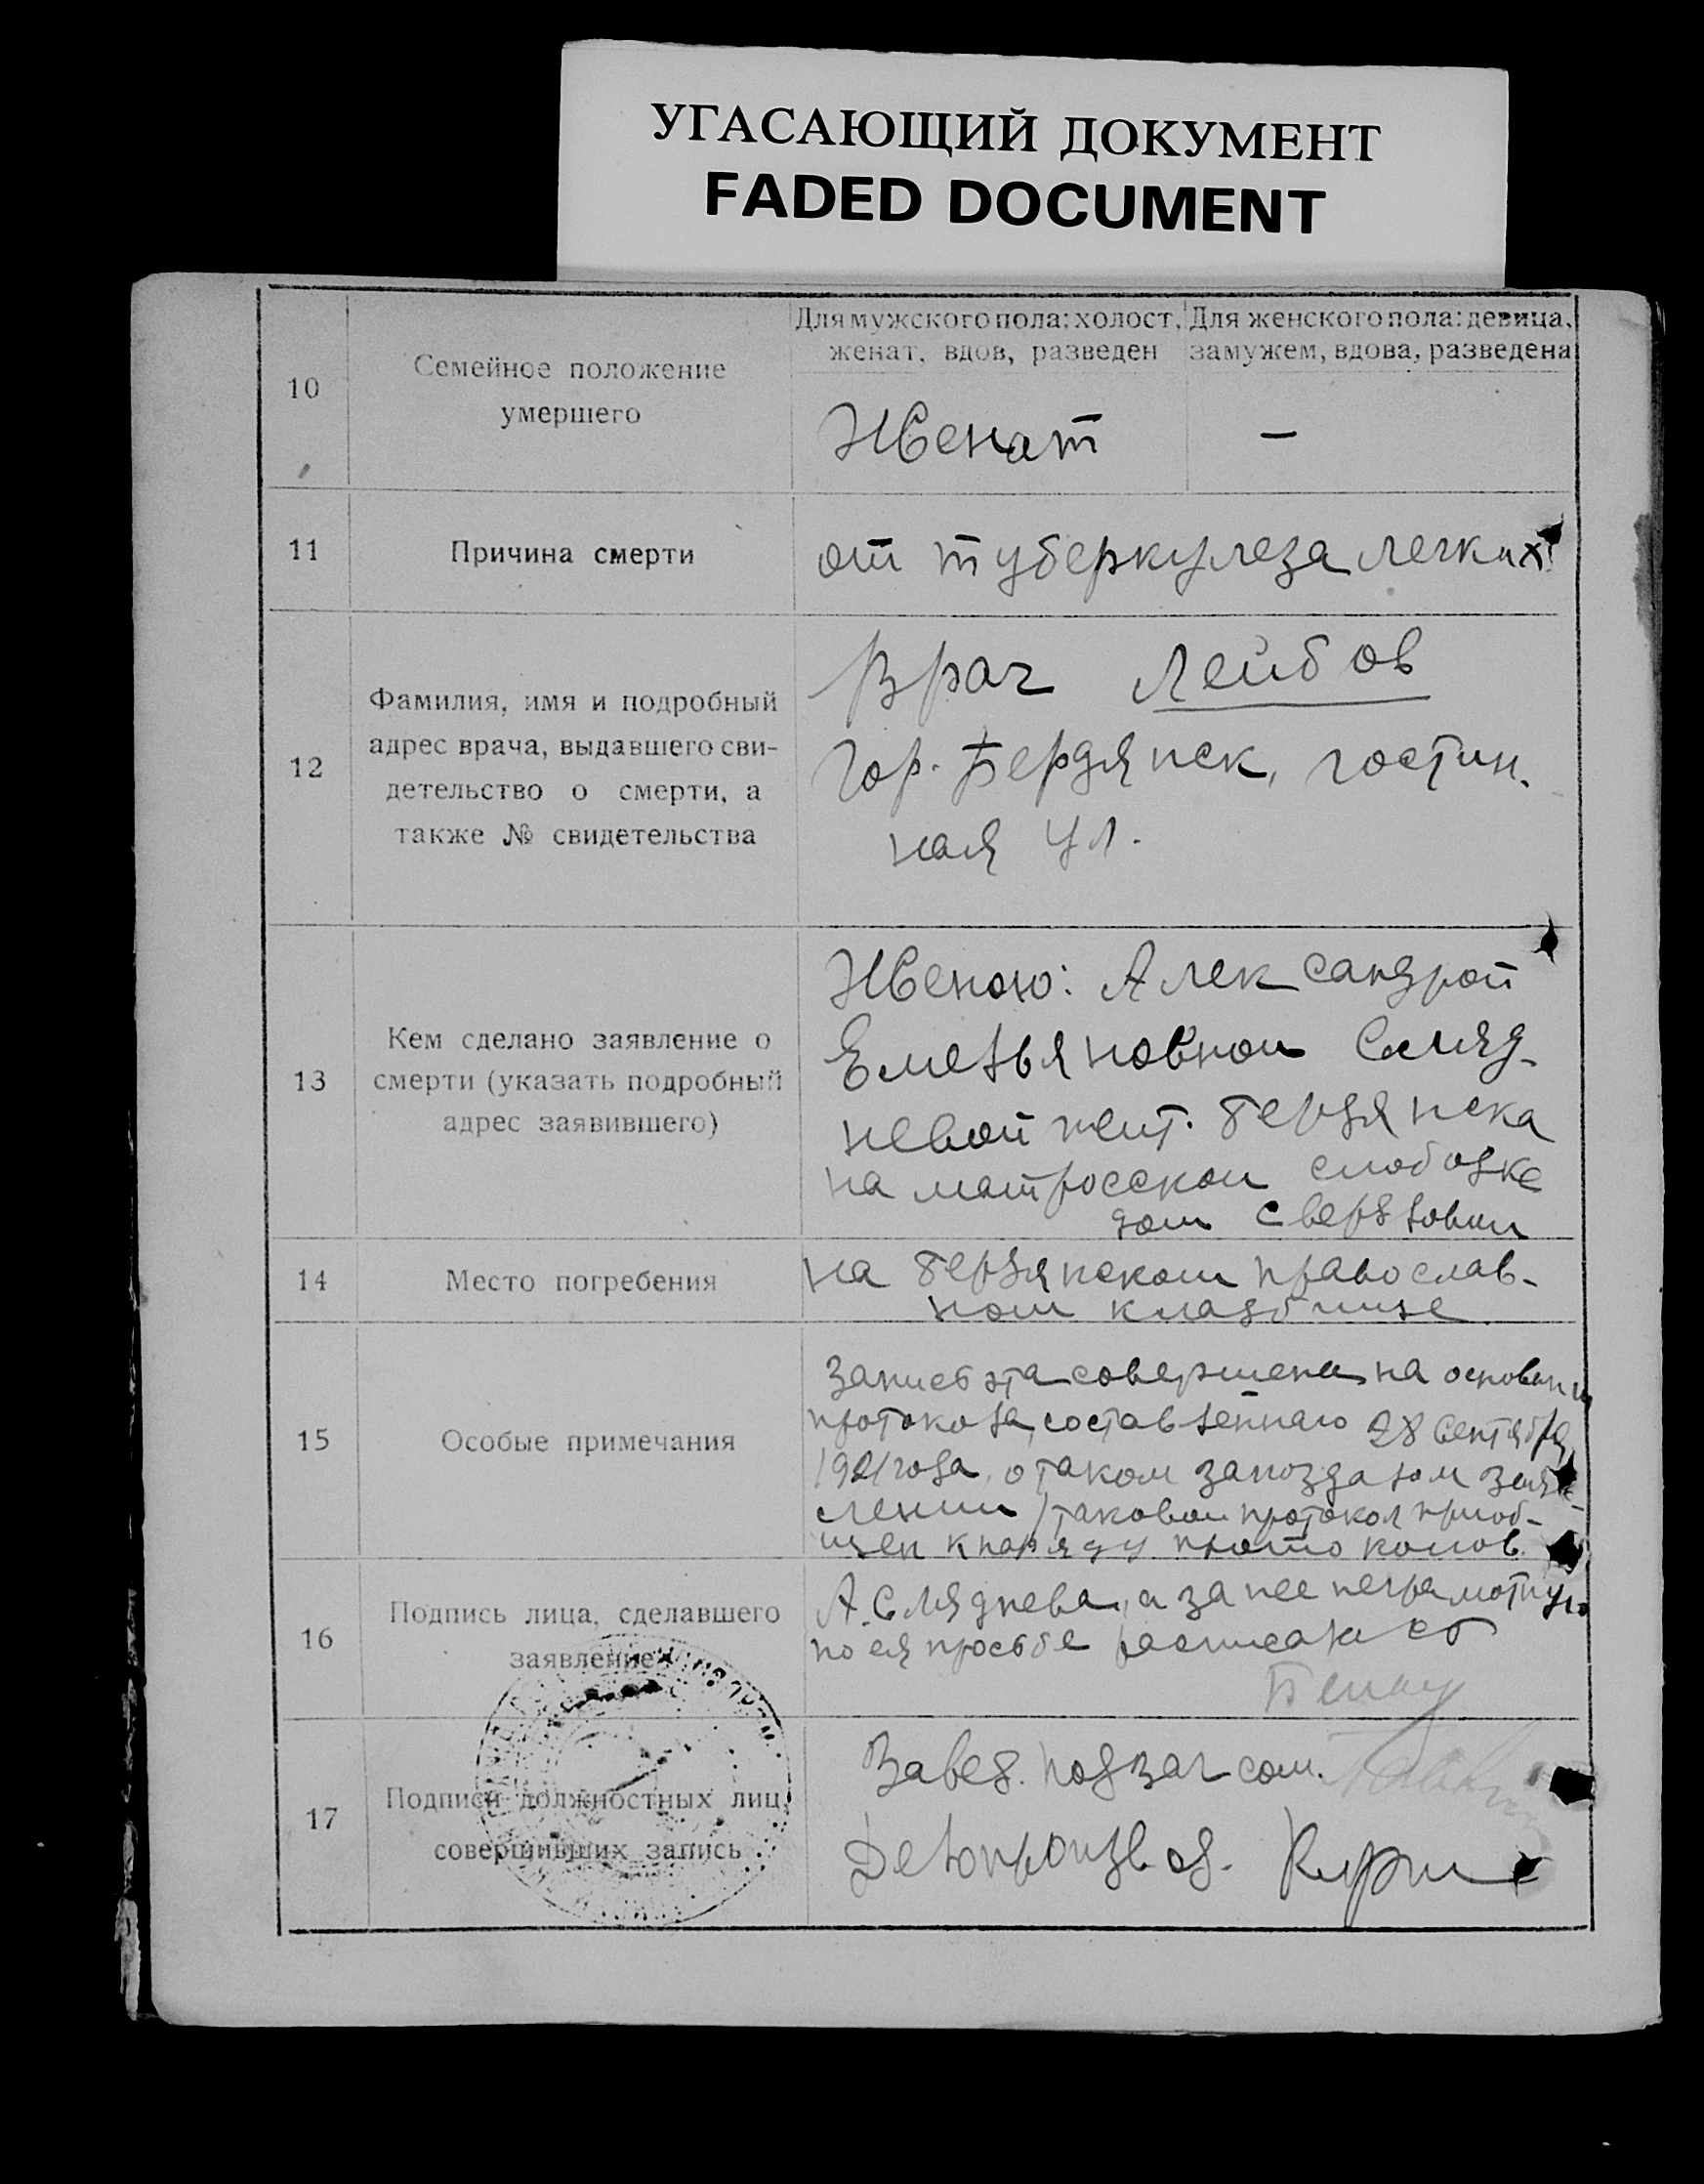 УГАСАЮЩИЙ ДОКУМЕНТ
FADED DOCUMENT
Для мужского пола: холост,
женат, вдов, разведен
Для женского пола: девица,
замужем, вдова, разведена
10
Семейное положение
умершего
Женат
—
11
Причина смерти
от туберкулеза легких
12
Фамилия, имя и подробный
адрес врача, выдавшего сви-
детельство о смерти, а
также № свидетельства
Врач Лейбов
Гор. Бердянск, гостин.
ная ул.
13
Кем сделано заявление о
смерти (указать подробный
адрес заявившего)
Женою: Александрой
Емельяновной Сляд-
невой жит. Бердянска
на матросской слободке
дом
14
Место погребения
на бердянском православ-
ном кладбище
15
Особые примечания
Запись эта совершена на основании
протокола, составленнаго 28 Сентября
1921 года, о таком запоздалом заяв-
лении, таковой протокол приоб-
щен к наряду протоколов.
16
Подпись лица, сделавшего
заявление
А. Сляднева, а за нее неграмотную
по ея просьбе расписались
17
Подписи должностных лиц,
совершивших запись
Завед. подзагсом.
Делопроизвод.